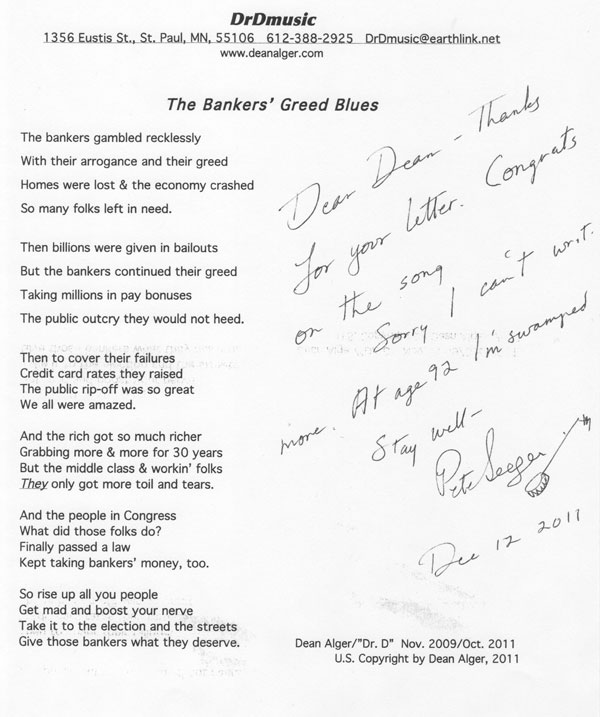 DrDmusic
1356 Eustis St., St. Paul, MN, 55106 612-388-2925 DrDmusic@earthlink.net
www.deanalger.com
The Bankers' Greed Blues
The bankers gambled recklessly
With their arrogance and their greed
Homes were lost & the economy crashed
So many folks left in need.
Then billions were given in bailouts
But the bankers continued their greed
Taking millions in pay bonuses
The public outcry they would not heed.
Then to cover their failures
Credit card rates they raised
The public rip-off was so great
We all were amazed.
And the rich got so much richer
Grabbing more & more for 30 years
But the middle class & workin' folks
They only got more toil and tears.
And the people in Congress
What did those folks do?
Finally passed a law
Kept taking bankers' money, too.
So rise up all you people
Get mad and boost your nerve
Take it to the election and the streets
Give those bankers what they deserve.
Dear Dean – Thanks
for your letter. Congrats
on the song
Sorry I can't write
more. At age 92 I'm swamped
Stay well –
Pete Seeger
Dec 12 2011
Dean Alger/"Dr. D" Nov. 2009/Oct. 2011
U.S. Copyright by Dean Alger, 2011